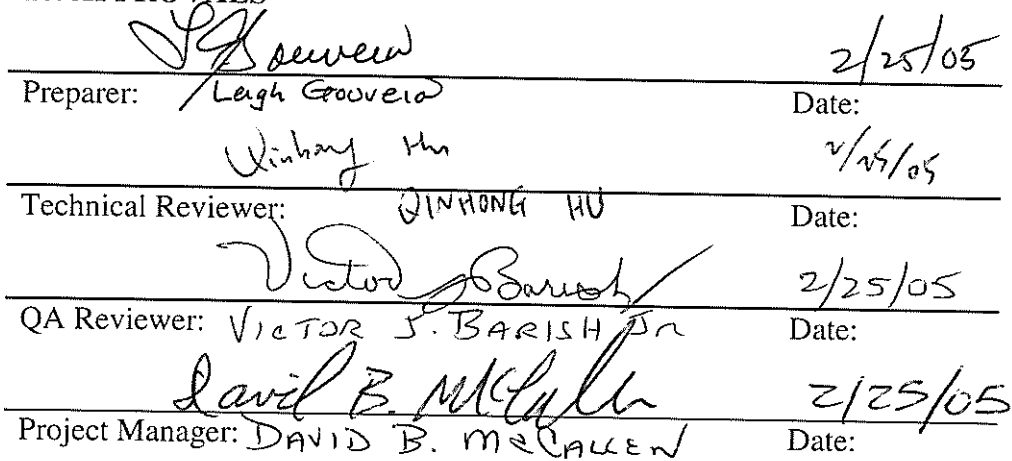 2/25/05
Preparer: Leigh Gouveia Date:
Qinhong Hu 2/25/05
Technical Reviewer: QINHONG HU Date:
Victor J Barish 2/25/05
QA Reviewer: VICTOR J. BARISH JR Date:
David B. McCallen 2/25/05
Project Manager: DAVID B. McCALLEN Date: